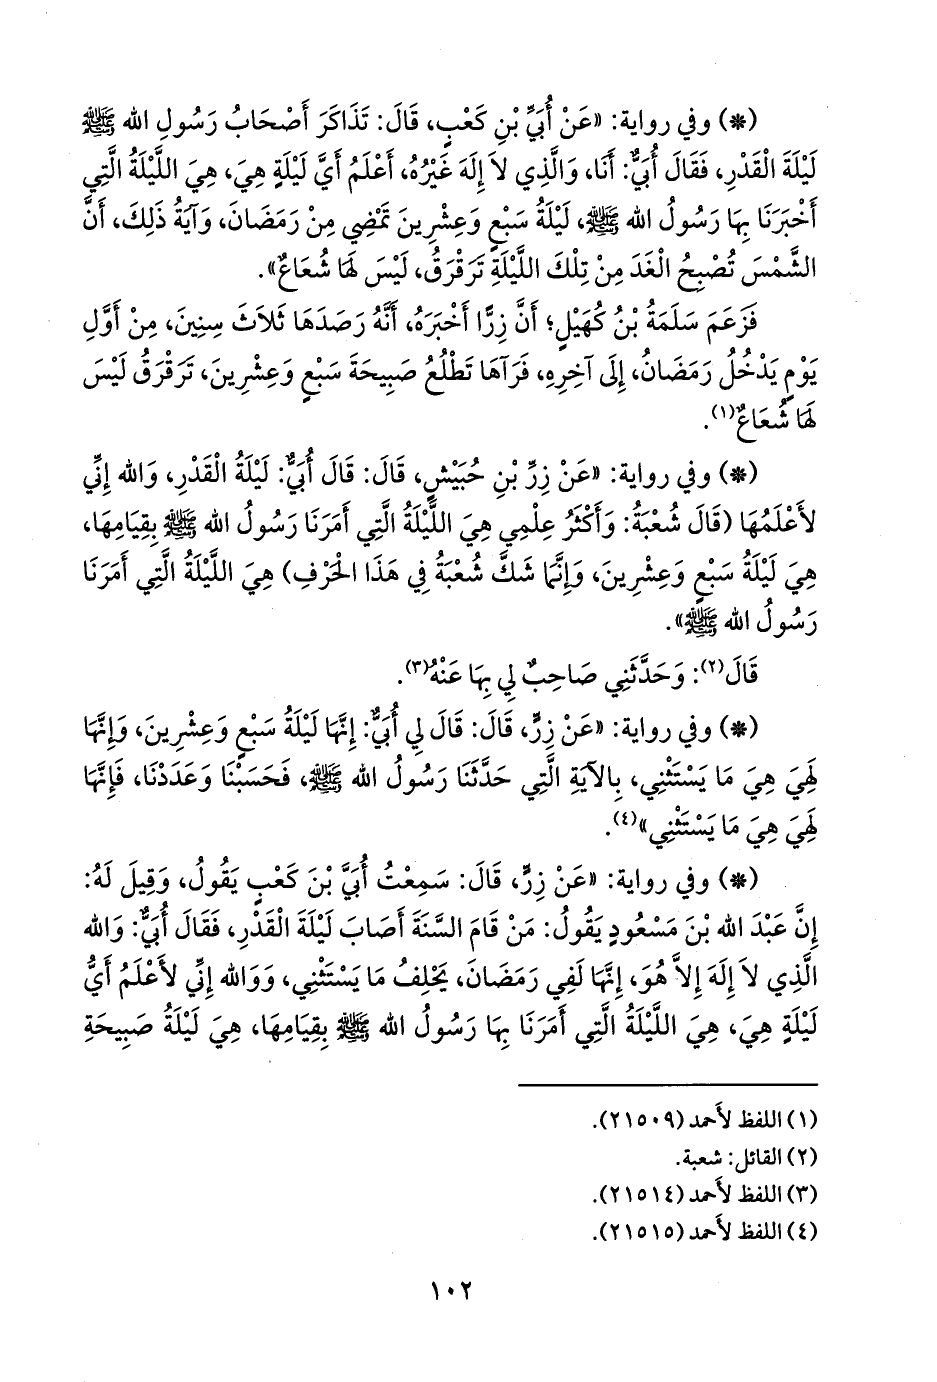 (*) وفي رواية: «عَنْ أُبَيِّ بْنِ كَعْبٍ، قَالَ: تَذَاكَرَ أَصْحَابُ رَسُولِ الله ﷺ
لَيْلَةَ الْقَدْرِ، فَقَالَ أُبَيٌّ: أَنَا، وَالَّذِي لاَ إِلَهَ غَيْرُهُ، أَعْلَمُ أَيَّ لَيْلَةٍ هِيَ، هِيَ اللَّيْلَةُ الَّتِي
أَخْبَرَنَا بِهَا رَسُولُ الله ﷺ، لَيْلَةُ سَبْعٍ وَعِشْرِينَ تَمْضِي مِنْ رَمَضَانَ، وَآيَةُ ذَلِكَ، أَنَّ
الشَّمْسَ تُصْبِحُ الْغَدَ مِنْ تِلْكَ اللَّيْلَةِ تَرَقْرَقُ، لَيْسَ لَهَا شُعَاعٌ».
فَزَعَمَ سَلَمَةُ بْنُ كُهَيْلٍ؛ أَنَّ زِرًّا أَخْبَرَهُ، أَنَّهُ رَصَدَهَا ثَلاَثَ سِنِينَ، مِنْ أَوَّلِ
يَوْمٍ يَدْخُلُ رَمَضَانُ، إِلَى آخِرِهِ، فَرَآهَا تَطْلُعُ صَبِيحَةَ سَبْعٍ وَعِشْرِينَ، تَرَقْرَقُ لَيْسَ
لَهَا شُعَاعٌ(١).
(*) وفي رواية: «عَنْ زِرِّ بْنِ حُبَيْشٍ، قَالَ: قَالَ أُبَيٌّ: لَيْلَةُ الْقَدْرِ، وَالله إِنِّي
لأَعْلَمُهَا (قَالَ شُعْبَةُ: وَأَكْثَرُ عِلْمِي هِيَ اللَّيْلَةُ الَّتِي أَمَرَنَا رَسُولُ الله ﷺ بِقِيَامِهَا،
هِيَ لَيْلَةُ سَبْعٍ وَعِشْرِينَ، وَإِنَّمَا شَكَّ شُعْبَةُ فِي هَذَا الْحَرْفِ) هِيَ اللَّيْلَةُ الَّتِي أَمَرَنَا
رَسُولُ الله ﷺ».
قَالَ(٢): وَحَدَّثَنِي صَاحِبٌ لِي بِهَا عَنْهُ(٣).
(*) وفي رواية: «عَنْ زِرٍّ، قَالَ: قَالَ لِي أُبَيٌّ: إِنَّهَا لَيْلَةُ سَبْعٍ وَعِشْرِينَ، وَإِنَّهَا
لَهِيَ هِيَ مَا يَسْتَثْنِي، بِالآيَةِ الَّتِي حَدَّثَنَا رَسُولُ الله ﷺ، فَحَسَبْنَا وَعَدَدْنَا، فَإِنَّهَا
لَهِيَ هِيَ مَا يَسْتَثْنِي»(٤).
(*) وفي رواية: «عَنْ زِرٍّ، قَالَ: سَمِعْتُ أُبَيَّ بْنَ كَعْبٍ يَقُولُ، وَقِيلَ لَهُ:
إِنَّ عَبْدَ الله بْنَ مَسْعُودٍ يَقُولُ: مَنْ قَامَ السَّنَةَ أَصَابَ لَيْلَةَ الْقَدْرِ، فَقَالَ أُبَيٌّ: وَالله
الَّذِي لاَ إِلَهَ إِلاَّ هُوَ، إِنَّهَا لَفِي رَمَضَانَ، يَحْلِفُ مَا يَسْتَثْنِي، وَوَالله إِنِّي لأَعْلَمُ أَيُّ
لَيْلَةٍ هِيَ، هِيَ اللَّيْلَةُ الَّتِي أَمَرَنَا بِهَا رَسُولُ الله ﷺ بِقِيَامِهَا، هِيَ لَيْلَةُ صَبِيحَةِ
(١) اللفظ لأَحمد (٢١٥٠٩).
(٢) القائل: شعبة.
(٣) اللفظ لأَحمد (٢١٥١٤).
(٤) اللفظ لأَحمد (٢١٥١٥).
١٠٢